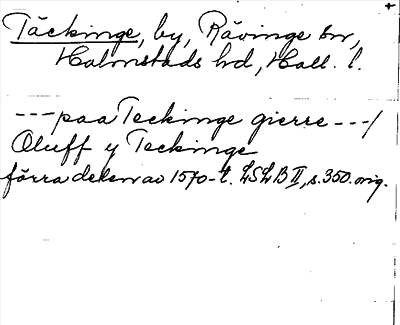 Täckinge, by, Rävinge sn,
Halmstads hd, Hall. l.
---paa Teckinge gierre---/
Oluff y Teckinge
förra delen av 1570-t. LSLB II, s. 350. orig.